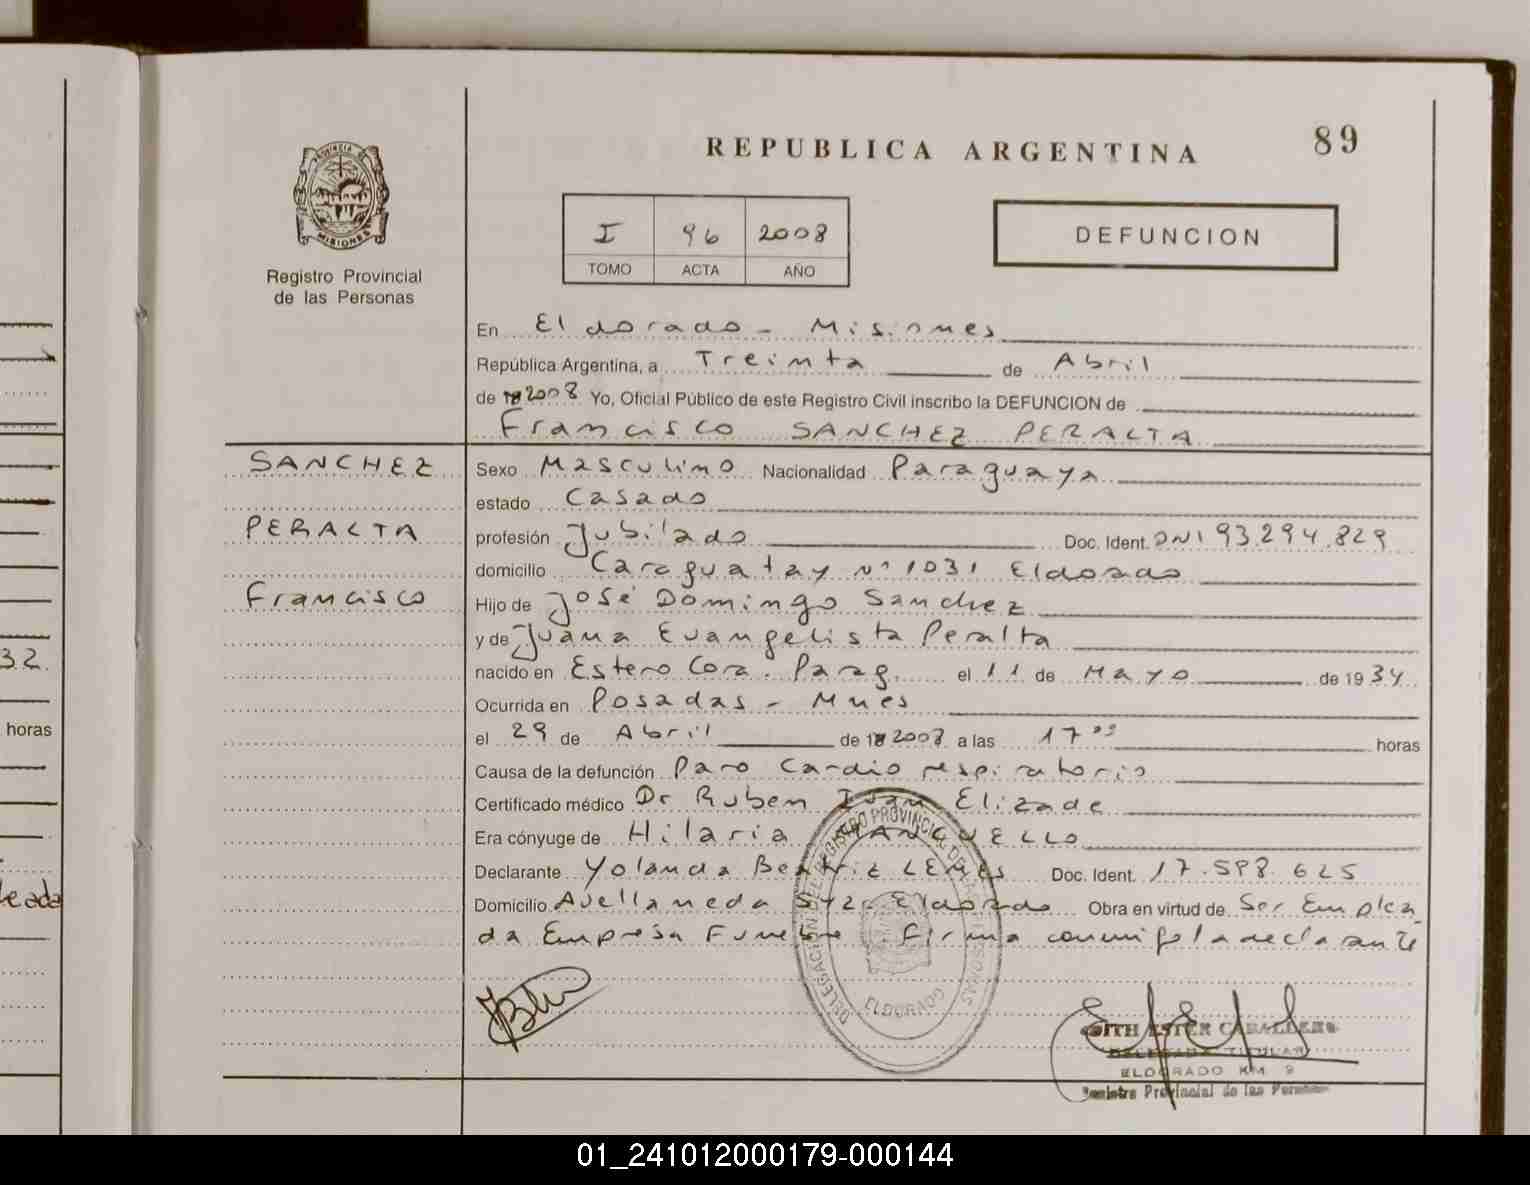 REPUBLICA ARGENTINA
89
PROVINCIA DE
MISIONES
Registro Provincial
de las Personas
I 96 2008
TOMO ACTA AÑO
DEFUNCION
En El dorado - Misiones
República Argentina, a Treinta de Abril
de 2008 Yo, Oficial Público de este Registro Civil inscribo la DEFUNCION de
Francisco SANCHEZ PERALTA
SANCHEZ
PERALTA
Francisco
Sexo Masculino Nacionalidad Paraguaya
estado Casado
profesión Jubilado Doc. Ident. DNI 93.294.829
domicilio Caraguatay Nº 1031 Eldorado
Hijo de José Domingo Sanchez
y de Juana Evangelista Peralta
nacido en Estero Cora. Parag. el 11 de Mayo de 1934
Ocurrida en Posadas - Mnes
el 29 de Abril de 2008 a las 17 horas
Causa de la defunción Paro Cardio respiratorio
Certificado médico Dr Ruben Ivan Elizade
Era cónyuge de Hilaria
Declarante Yolanda Beatriz LEMES Doc. Ident. 17.598.625
Domicilio Avellaneda Eldorado Obra en virtud de Ser Emplea
da Empresa Funebre. Firma conmigo la declarante
32.
horas
leada
DELEGACION DEL REGISTRO PROVINCIAL DE LAS PERSONAS
ELDORADO
EDITH ESTER CABALLERO
DELEGADA TITULAR
ELDORADO KM 9
Registro Provincial de las Personas
01_241012000179-000144